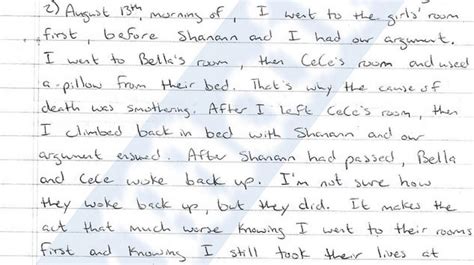 2) August 13th, morning of, I went to the girls' room
first, before Shanann and I had our argument.
I went to Bella's room, then CeCe's room and used
a pillow from their bed. That's why the cause of
death was smothering. After I left CeCe's room, then
I climbed back in bed with Shanann and our
argument ensued. After Shanann had passed, Bella
and CeCe woke back up. I'm not sure how
they woke back up, but they did. It makes the
act that much worse knowing I went to their rooms
first and knowing I still took their lives at